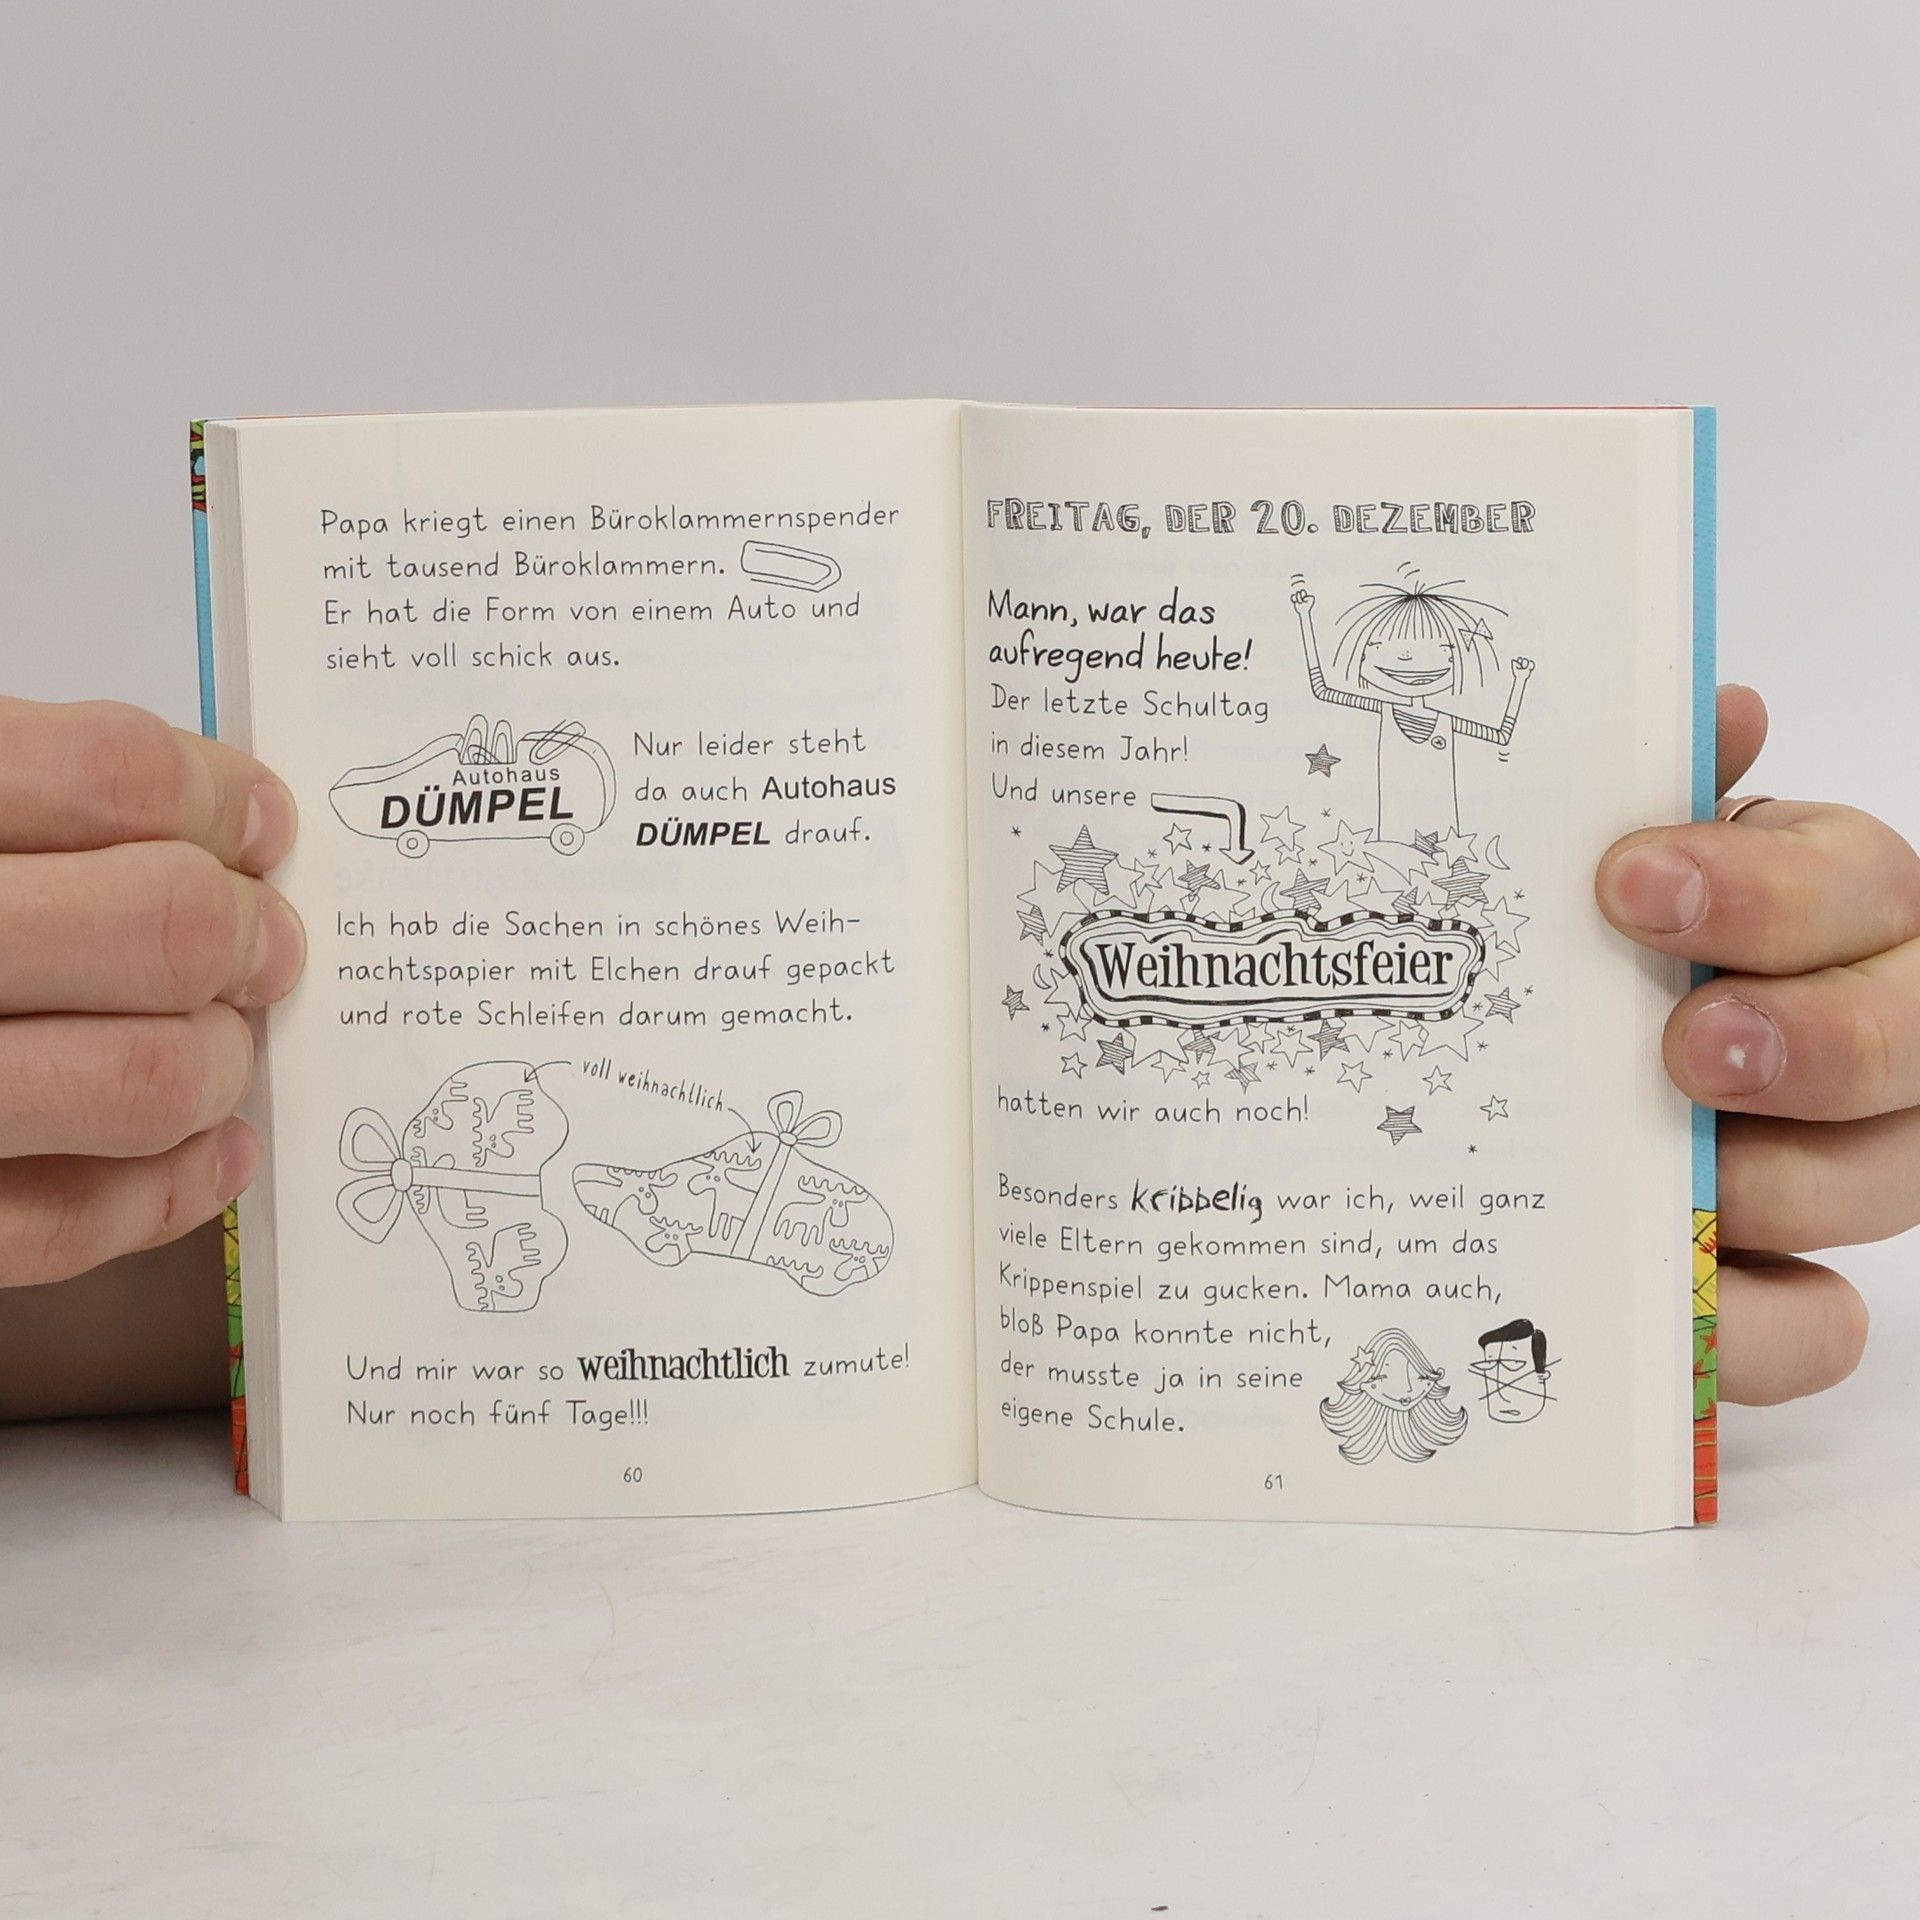 Papa kriegt einen Büroklammernspender
mit tausend Büroklammern.
Er hat die Form von einem Auto und
sieht voll schick aus.
Autohaus
DÜMPEL
Nur leider steht
da auch Autohaus
DÜMPEL drauf.
Ich hab die Sachen in schönes Weih-
nachtspapier mit Elchen drauf gepackt
und rote Schleifen darum gemacht.
voll weihnachtlich
Und mir war so weihnachtlich zumute!
Nur noch fünf Tage!!!
60
FREITAG, DER 20. DEZEMBER
Mann, war das
aufregend heute!
Der letzte Schultag
in diesem Jahr!
Und unsere
Weihnachtsfeier
hatten wir auch noch!
Besonders kribbelig war ich, weil ganz
viele Eltern gekommen sind, um das
Krippenspiel zu gucken. Mama auch,
bloß Papa konnte nicht,
der musste ja in seine
eigene Schule.
61